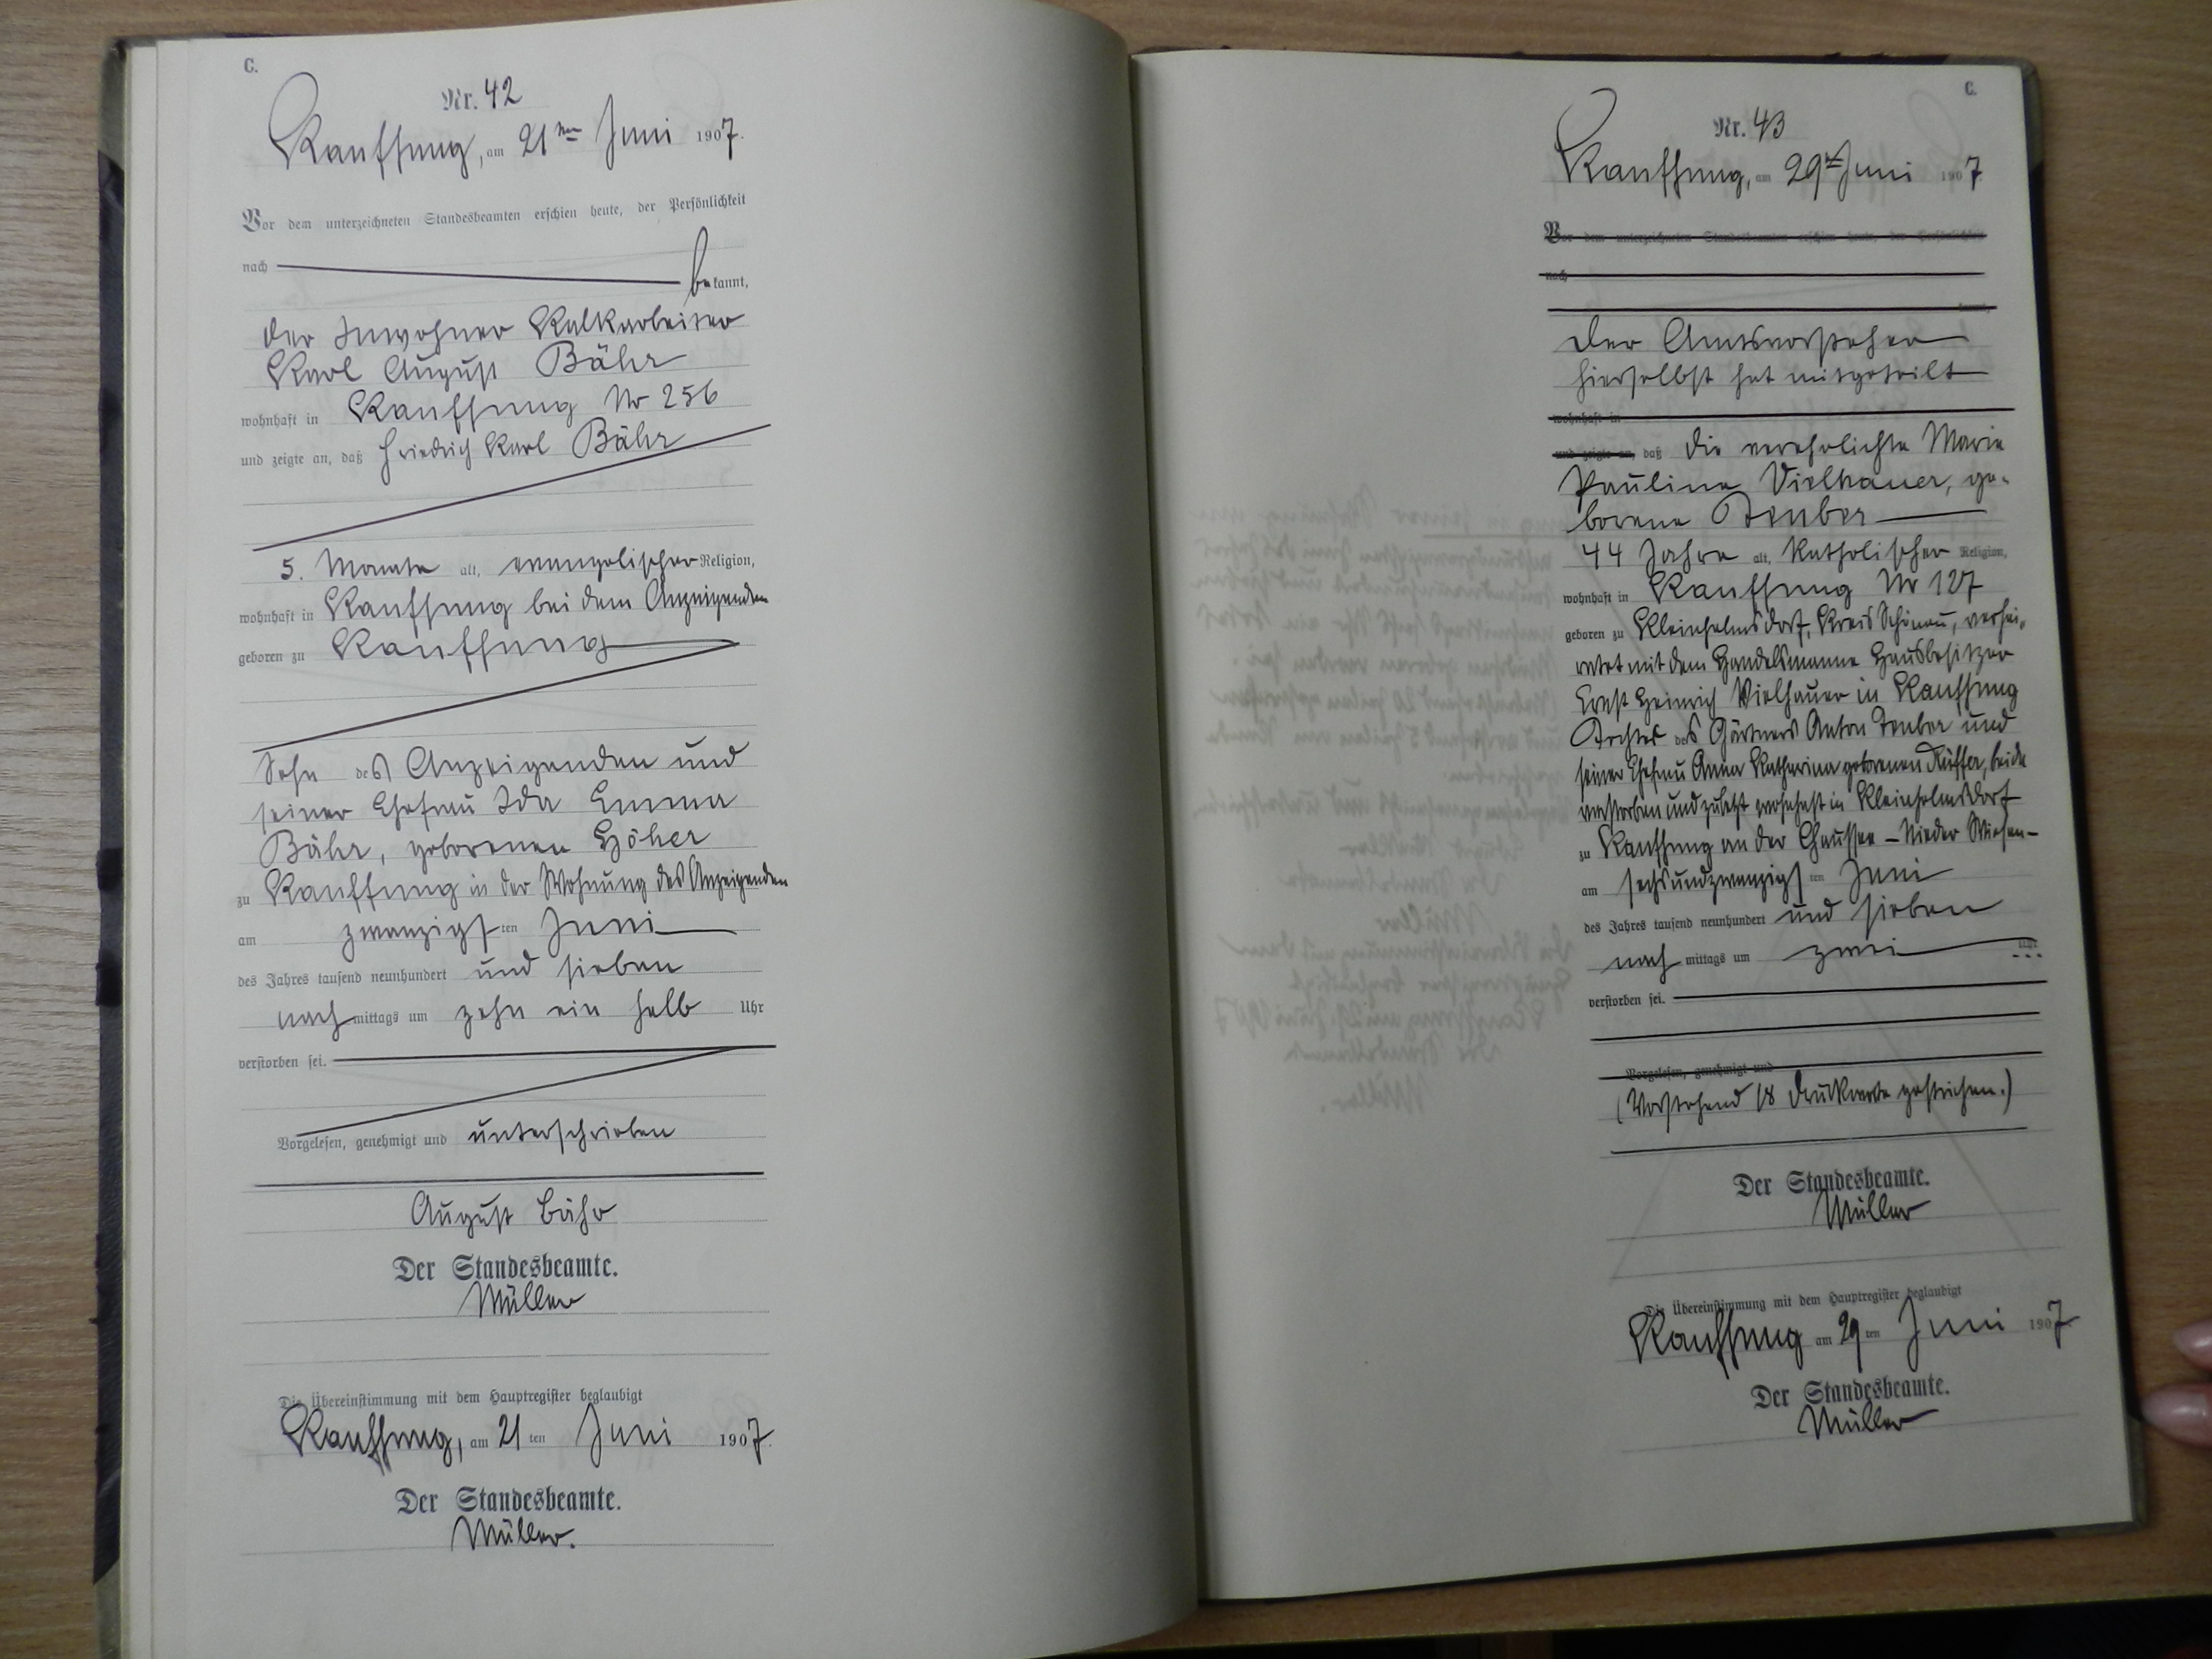 C.
Nr. 42
Kauffung, am 21ten Juni 1907.
Vor dem unterzeichneten Standesbeamten erschien heute, der Persönlichkeit
nach bekannt,
der Inwohner Kalkarbeiter
Karl August Bähr
wohnhaft in Kauffung Nr 256
und zeigte an, daß Friedrich Karl Bähr
5. Monate alt, evangelischer Religion,
wohnhaft in Kauffung bei dem Anzeigenden
geboren zu Kauffung
Sohn des Anzeigenden und
seiner Ehefrau Ida Emma
Bähr, geborenen Höher
zu Kauffung in der Wohnung des Anzeigenden
am zwanzigsten Juni
des Jahres tausend neunhundert und sieben
nachmittags um zehn ein halb Uhr
verstorben sei.
Vorgelesen, genehmigt und unterschrieben
August Bähr
Der Standesbeamte.
Müller
Die Übereinstimmung mit dem Hauptregister beglaubigt
Kauffung, am 21ten Juni 1907.
Der Standesbeamte.
Müller.
C.
Nr. 43
Kauffung, am 29ten Juni 1907
Vor dem unterzeichneten Standesbeamten erschien heute, der Persönlichkeit
nach
kannt,
Der Amtsvorsteher
hierselbst hat mitgeteilt
wohnhaft in
und zeigte an, daß die verehelichte Marie
Pauline Vielhauer, ge-
borene Teuber
44 Jahre alt, katholischer Religion,
wohnhaft in Kauffung Nr 127
geboren zu Kleinhelmsdorf, Kreis Schönau, verhei-
ratet mit dem Handelsmanne Hausbesitzer
Ernst Heinrich Vielhauer in Kauffung
Tochter des Gärtners Anton Teuber und
seiner Ehefrau Anna Katharina geborenen Rüffer, beide
verstorben und zuletzt wohnhaft in Kleinhelmsdorf
zu Kauffung an der Chaussee – Nieder Wiesen –
am sechsundzwanzigsten Juni
des Jahres tausend neunhundert und sieben
nachmittags um zwei Uhr
verstorben sei.
Vorgelesen, genehmigt und
(Vorstehend 18 Druckworte gestrichen.)
Der Standesbeamte.
Müller
Die Übereinstimmung mit dem Hauptregister beglaubigt
Kauffung am 29ten Juni 1907
Der Standesbeamte.
Müller